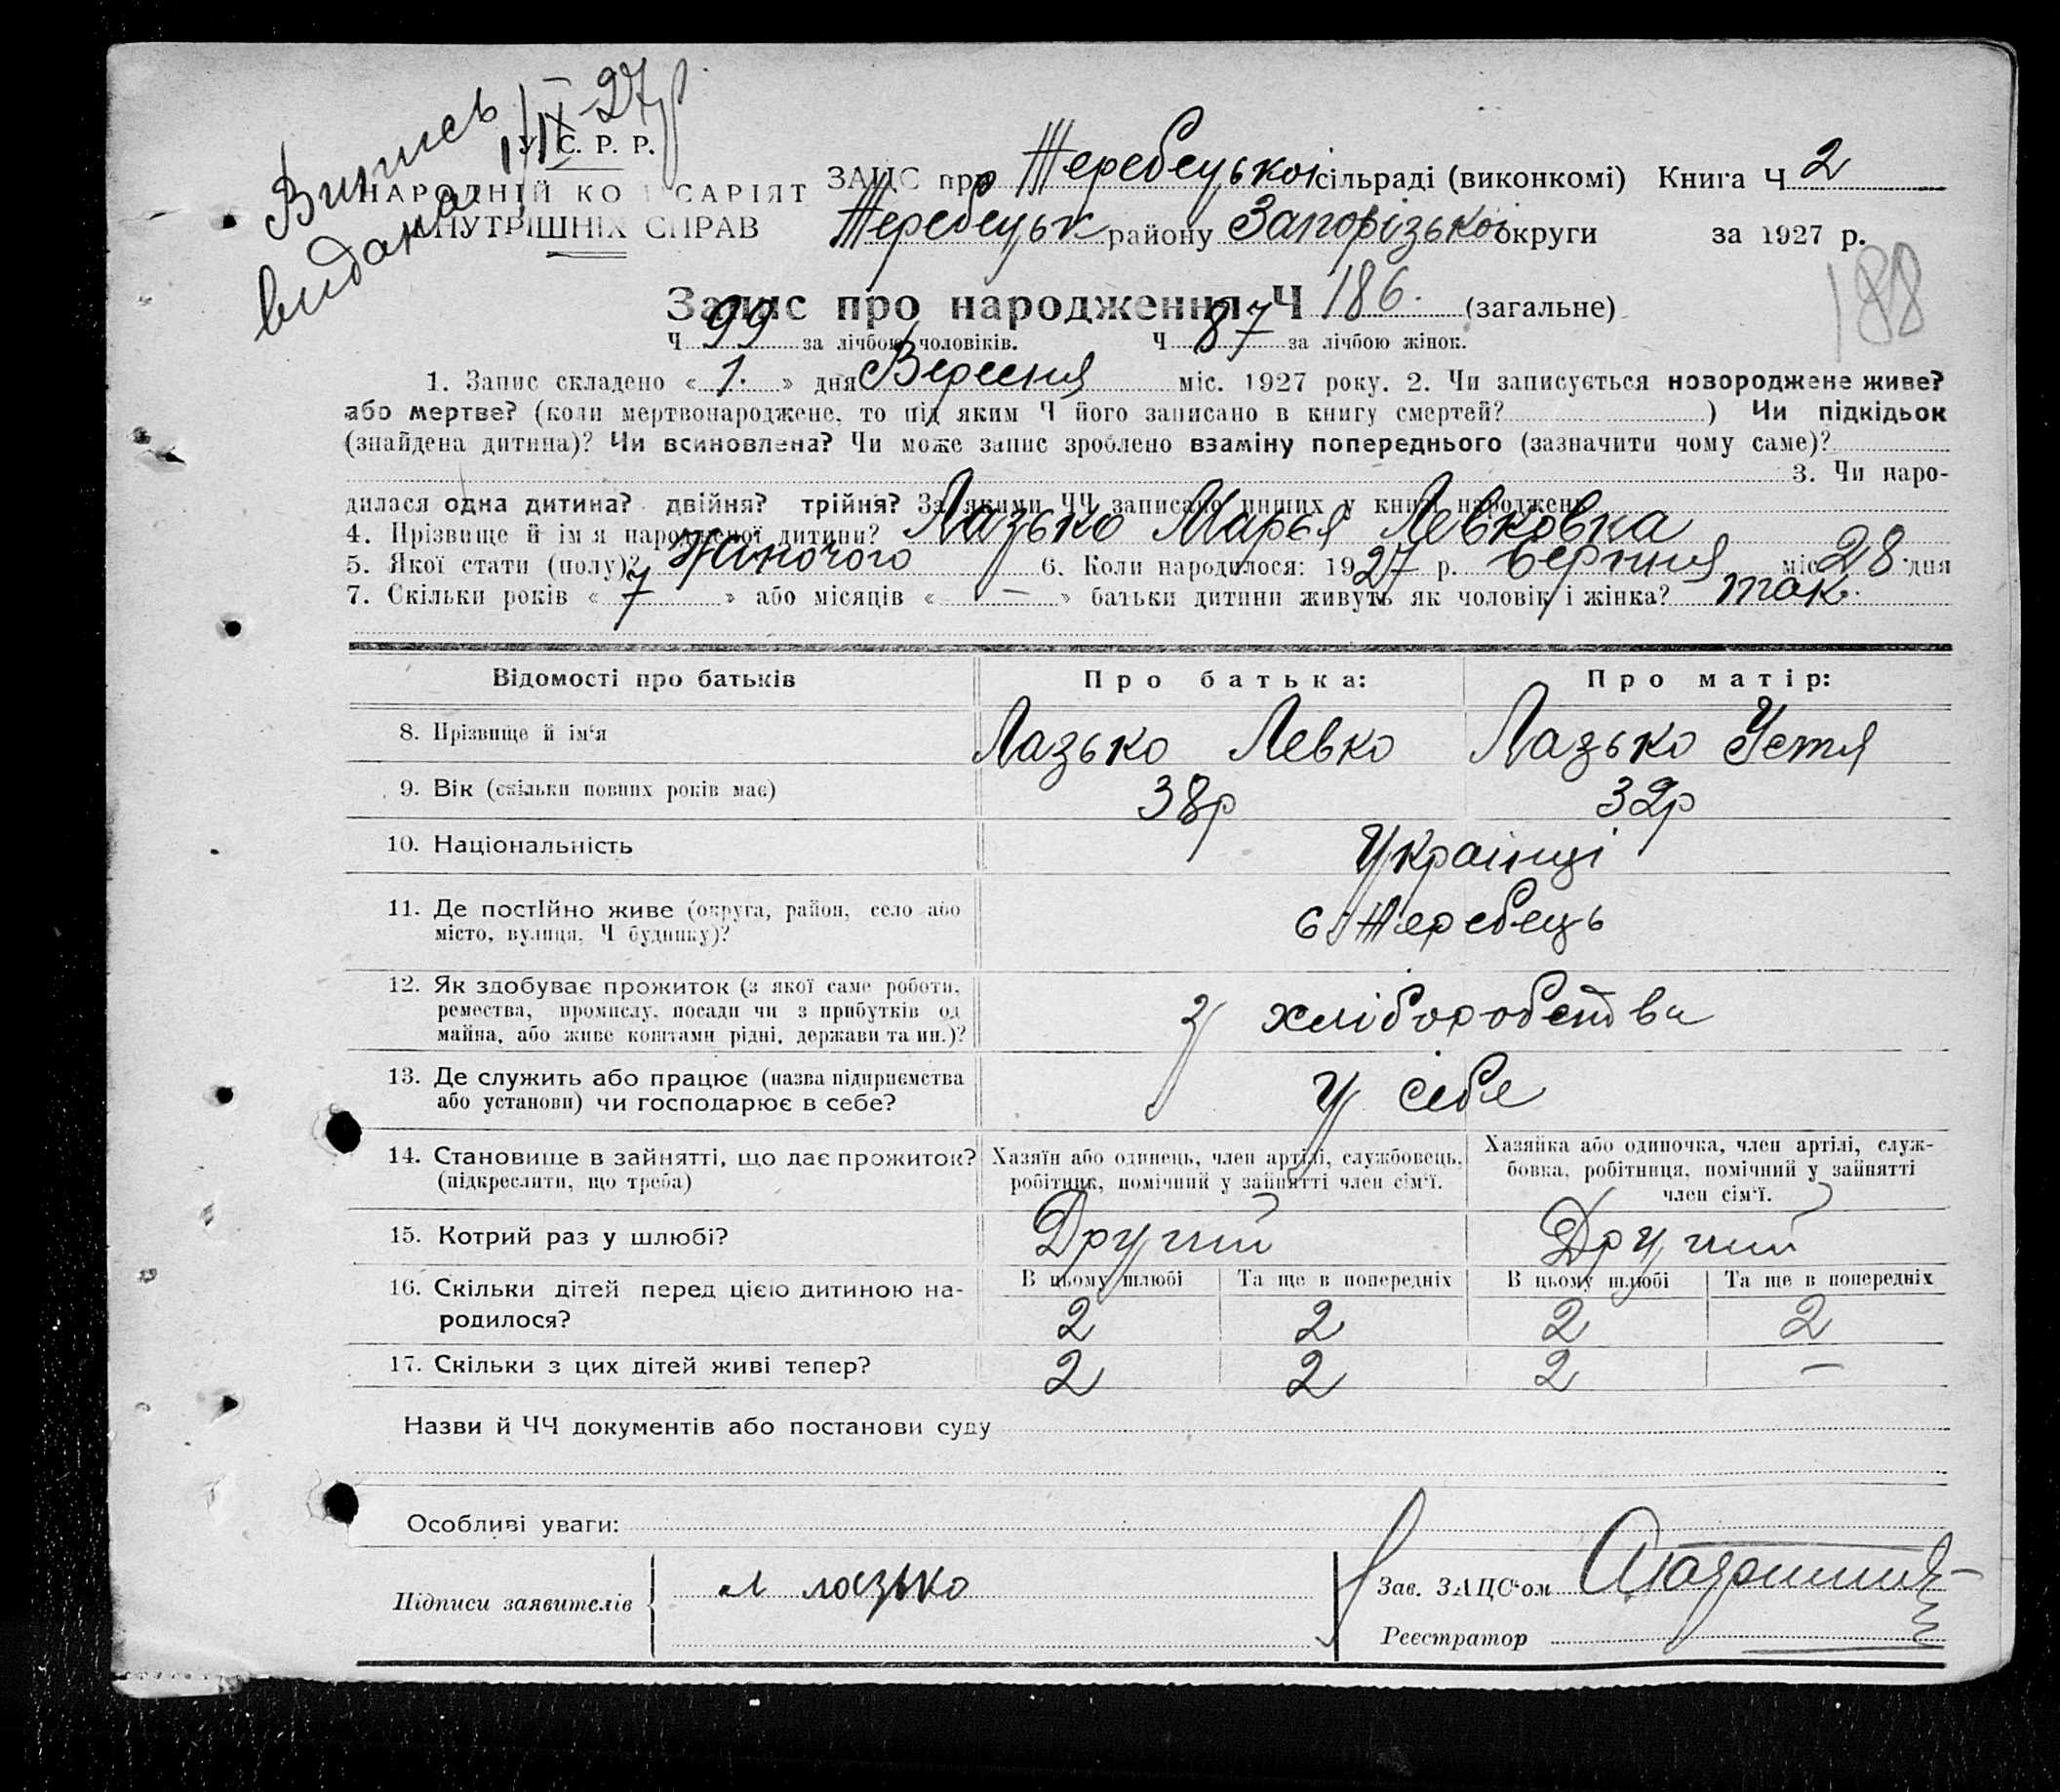 Випись
видана 1/IX-27р.
У. С. Р. Р.
НАРОДНІЙ КОМІСАРІЯТ
ВНУТРІШНІХ СПРАВ
ЗАЦС при Жеребецької сільраді (виконкомі) Книга Ч 2
Жеребецьк району Запорізької округи за 1927 р.
188
Запис про народження Ч 186. (загальне)
Ч 99 за лічбою чоловіків. Ч 87 за лічбою жінок.
1. Запис складено « 1. » дня Вересня міс. 1927 року. 2. Чи записується новороджене живе?
або мертве? (коли мертвонароджене, то під яким Ч його записано в книгу смертей? ) Чи підкідьок
(знайдена дитина)? Чи всиновлена? Чи може запис зроблено взаміну попереднього (зазначити чому саме)?
3. Чи наро-
дилася одна дитина? двійня? трійня? За якими ЧЧ записано инших у книзі народжень
4. Прізвище й ім'я народженої дитини? Лазько Марья Левковна
5. Якої стати (полу)? Жіночого 6. Коли народилося: 1927 р. Серпня міс. 28 дня
7. Скільки років « 7 » або місяців « — » батьки дитини живуть як чоловік і жінка? так.
Відомості про батьків Про батька: Про матір:
8. Прізвище й ім'я Лазько Левко Лазько Устя
9. Вік (скільки повних років має) 38р 32р
10. Національність Українці
11. Де постійно живе (округа, район, село або
місто, вулиця, Ч будинку)? с Жеребець
12. Як здобуває прожиток (з якої саме роботи,
ремества, промислу, посади чи з прибутків од
майна, або живе коштами рідні, держави та ин.)? з хліборобства
13. Де служить або працює (назва підприємства
або установи) чи господарює в себе? У себе
14. Становище в зайнятті, що дає прожиток?
(підкреслити, що треба)
Хазяїн або одинець, член артілі, службовець,
робітник, помічний у зайнятті член сім'ї.
Хазяйка або одиночка, член артілі, служ-
бовка, робітниця, помічний у зайнятті
член сім'ї.
15. Котрий раз у шлюбі? Другий Другий
16. Скільки дітей перед цією дитиною на-
родилося?
В цьому шлюбі Та ще в попередніх В цьому шлюбі Та ще в попередніх
2 2 2 2
17. Скільки з цих дітей живі тепер? 2 2 2 —
Назви й ЧЧ документів або постанови суду
Особливі уваги:
Підписи заявителів л лазько
Зав. ЗАЦС'ом
Реєстратор